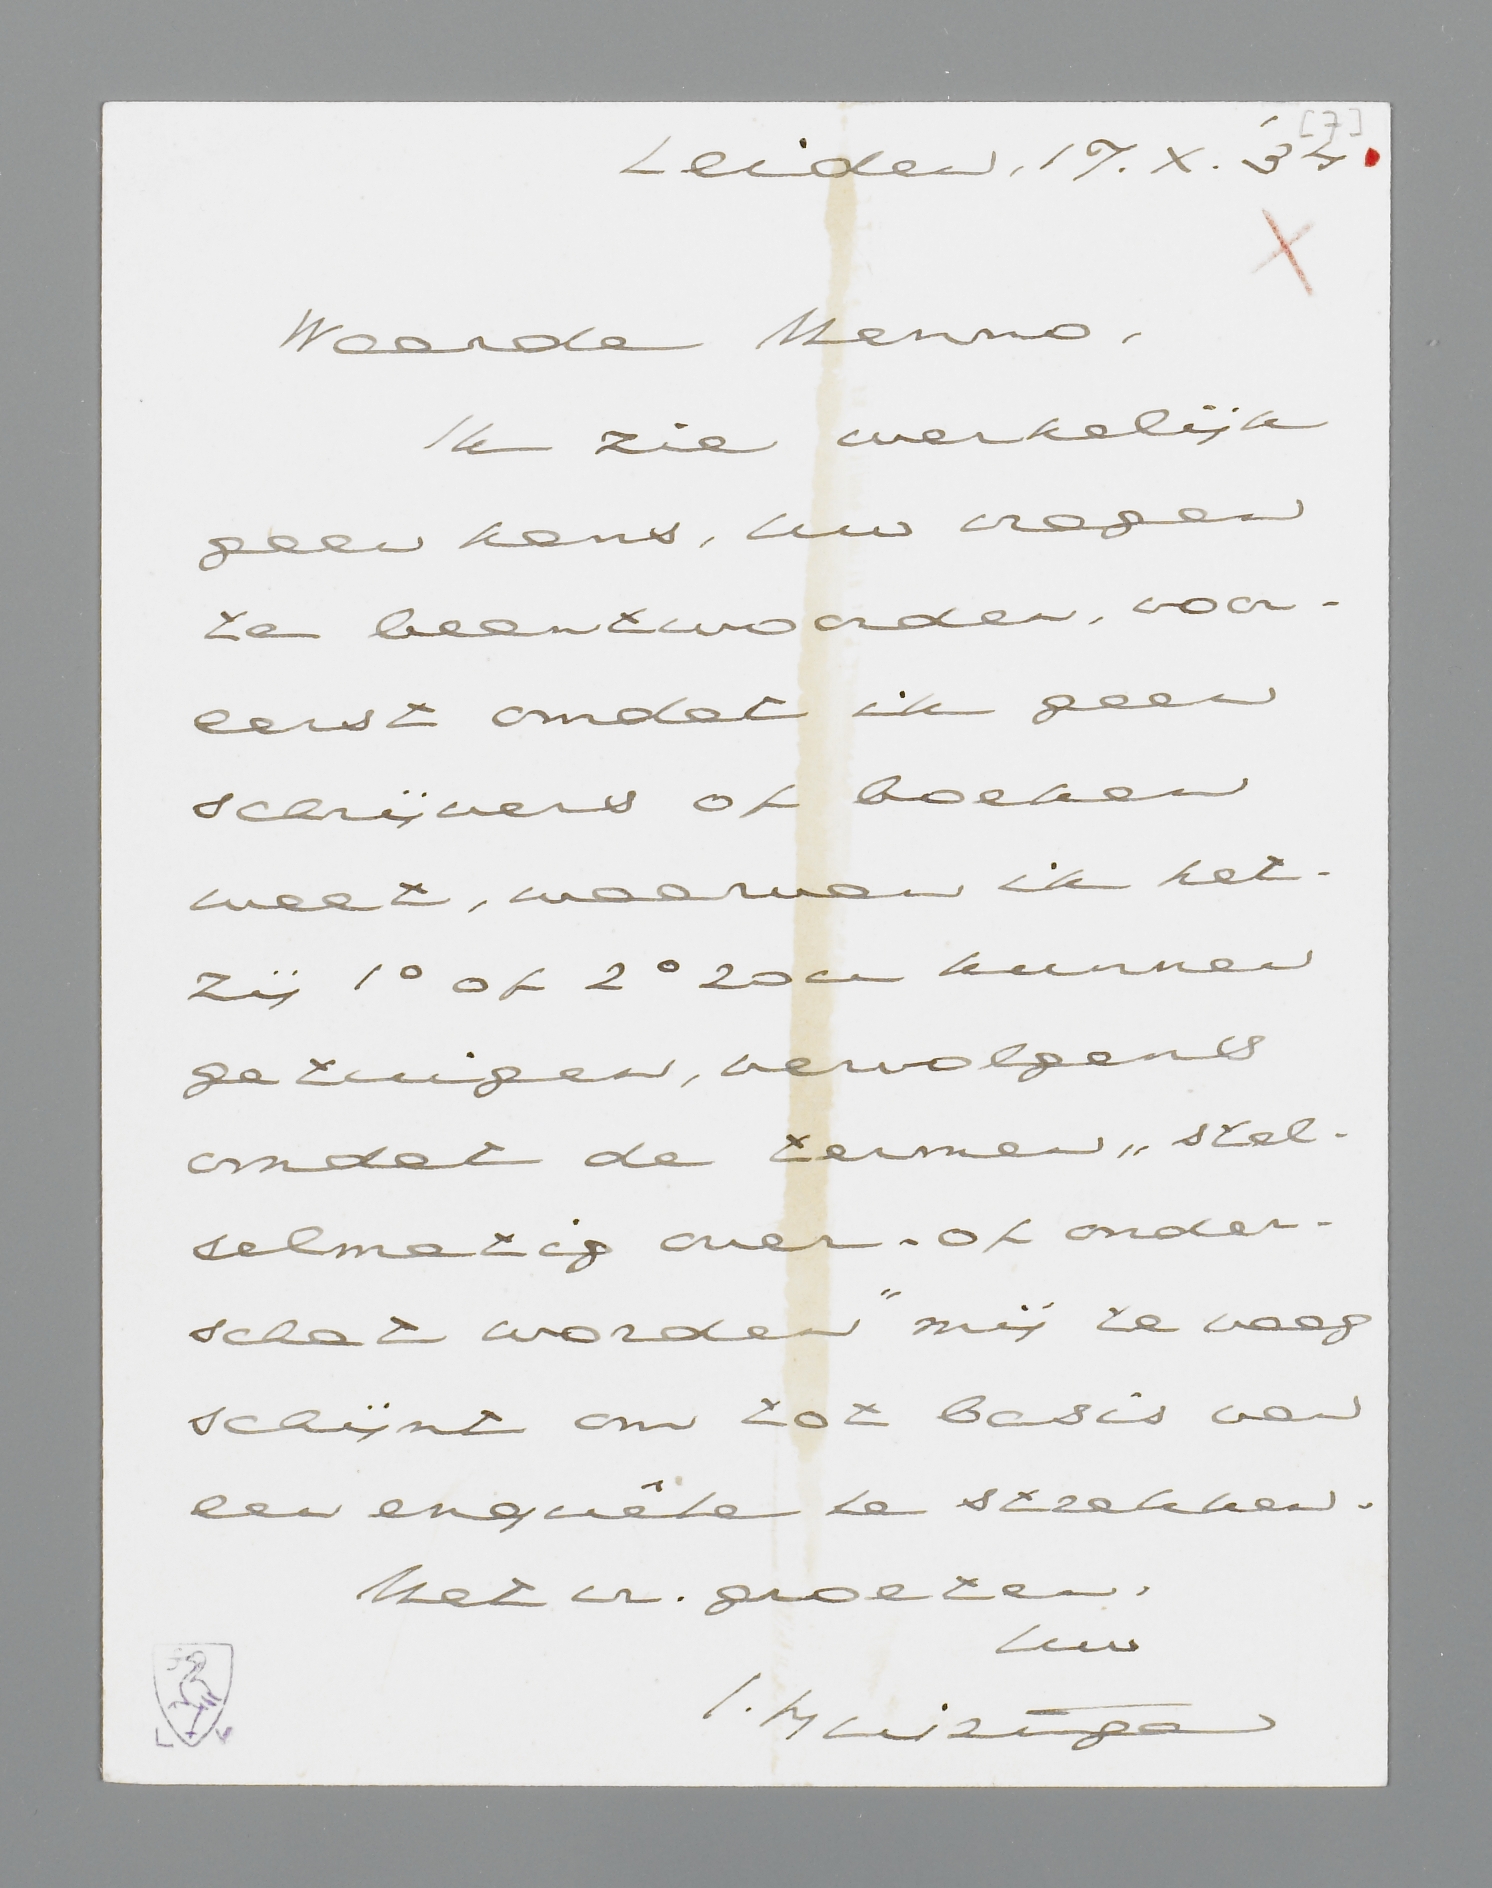 [7]
Leiden, 17.X.'34
Waarde Menno,
Ik zie werkelijk
geen kans, uw vragen
te beantwoorden, voor-
eerst omdat ik geen
schrijvers of boeken
weet, waarvan ik het-
zij 1° of 2° zou kunnen
getuigen, vervolgens
omdat de termen „stel-
selmatig over- of onder-
schat worden" mij te vaag
schijnt om tot basis van
een enquête te strekken.
Met vr. groeten,
uw
J. Huizinga
L M